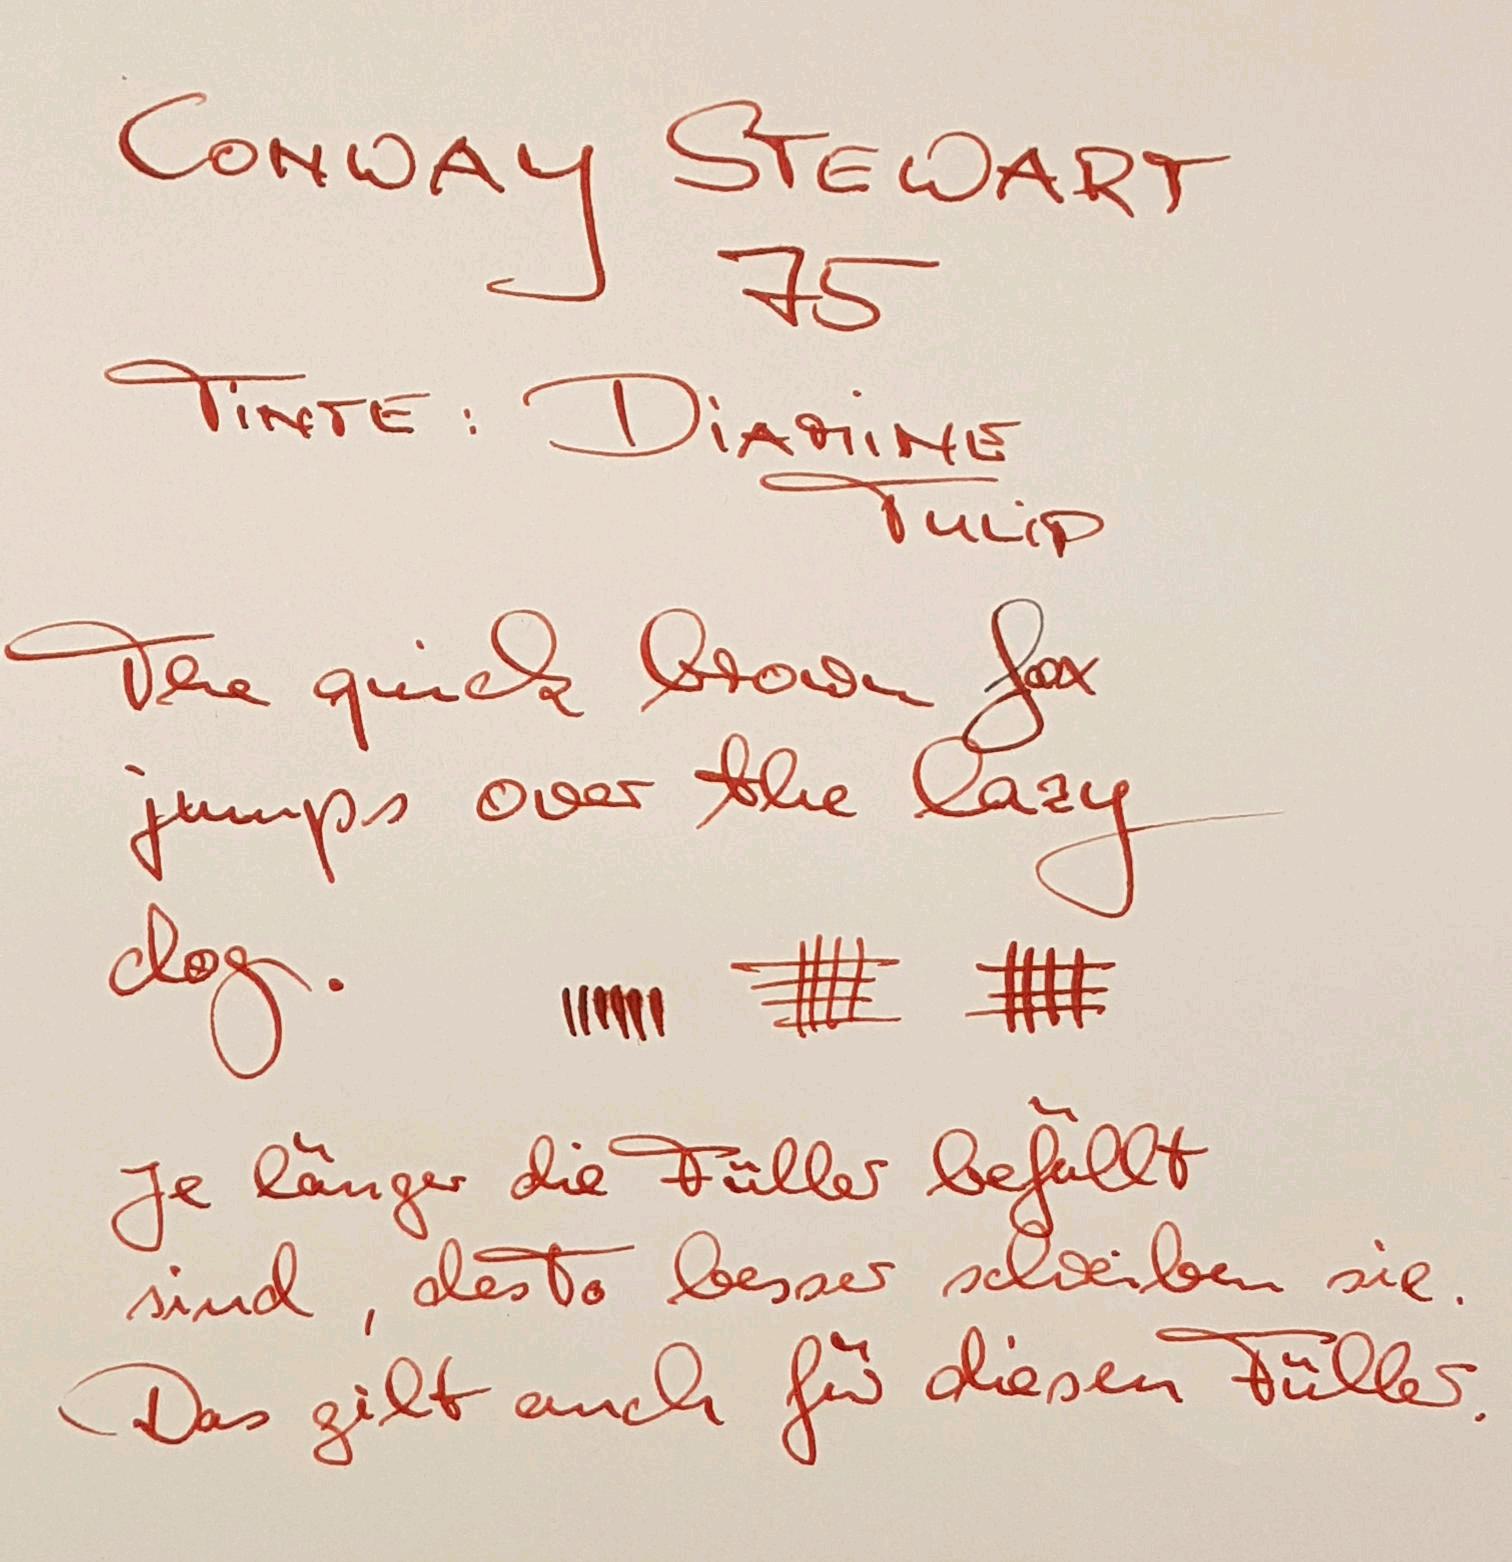 CONWAY STEWART
75
TINTE: DIAMINE
TULIP
The quick brown fox
jumps over the lazy
dog.
Je länger die Füller befüllt
sind, desto besser schreiben sie.
Das gilt auch für diesen Füller.